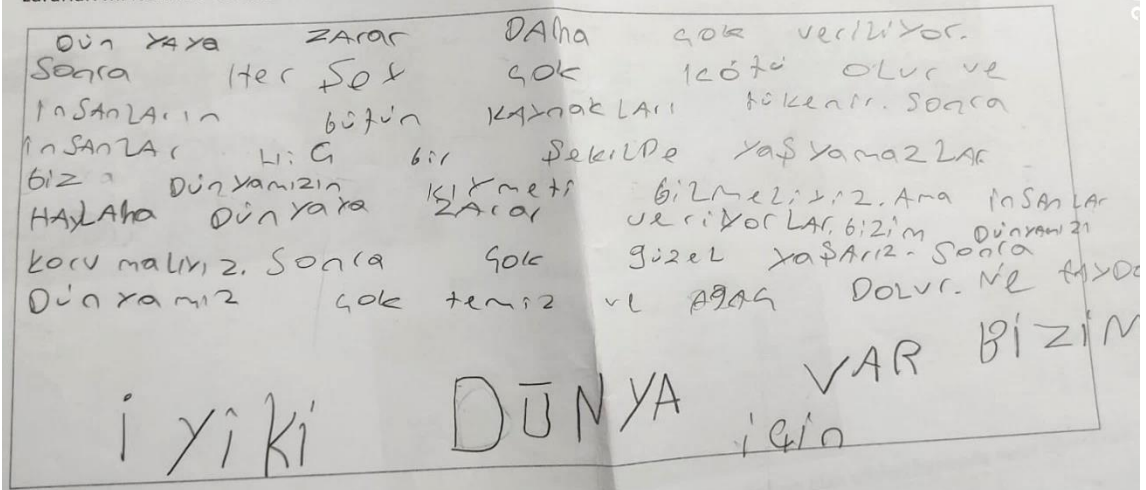 Dün yaya zarar DAha çok veriliyor.
Sonra Her Şey çok kötü oLur ve
inSAnLArın bütün kAynakLArı tükenir. Sonra
inSAnLAr HiÇ bir ŞekiLDe yaşyamazLAr
biz Dünyamızın kıymeti biLmeLiyiz. Ama inSAnLAr
HAyLAha Dünyaya ZArar veriyorLAr. bizim Dünyamızı
koru malıyız. Sonra Çok güzeL yaŞArız. Sonra
Dünyamız çok temiz ve Ağaç DoLur. Ne
iyiki DÜNYA VAR BİZİM
için